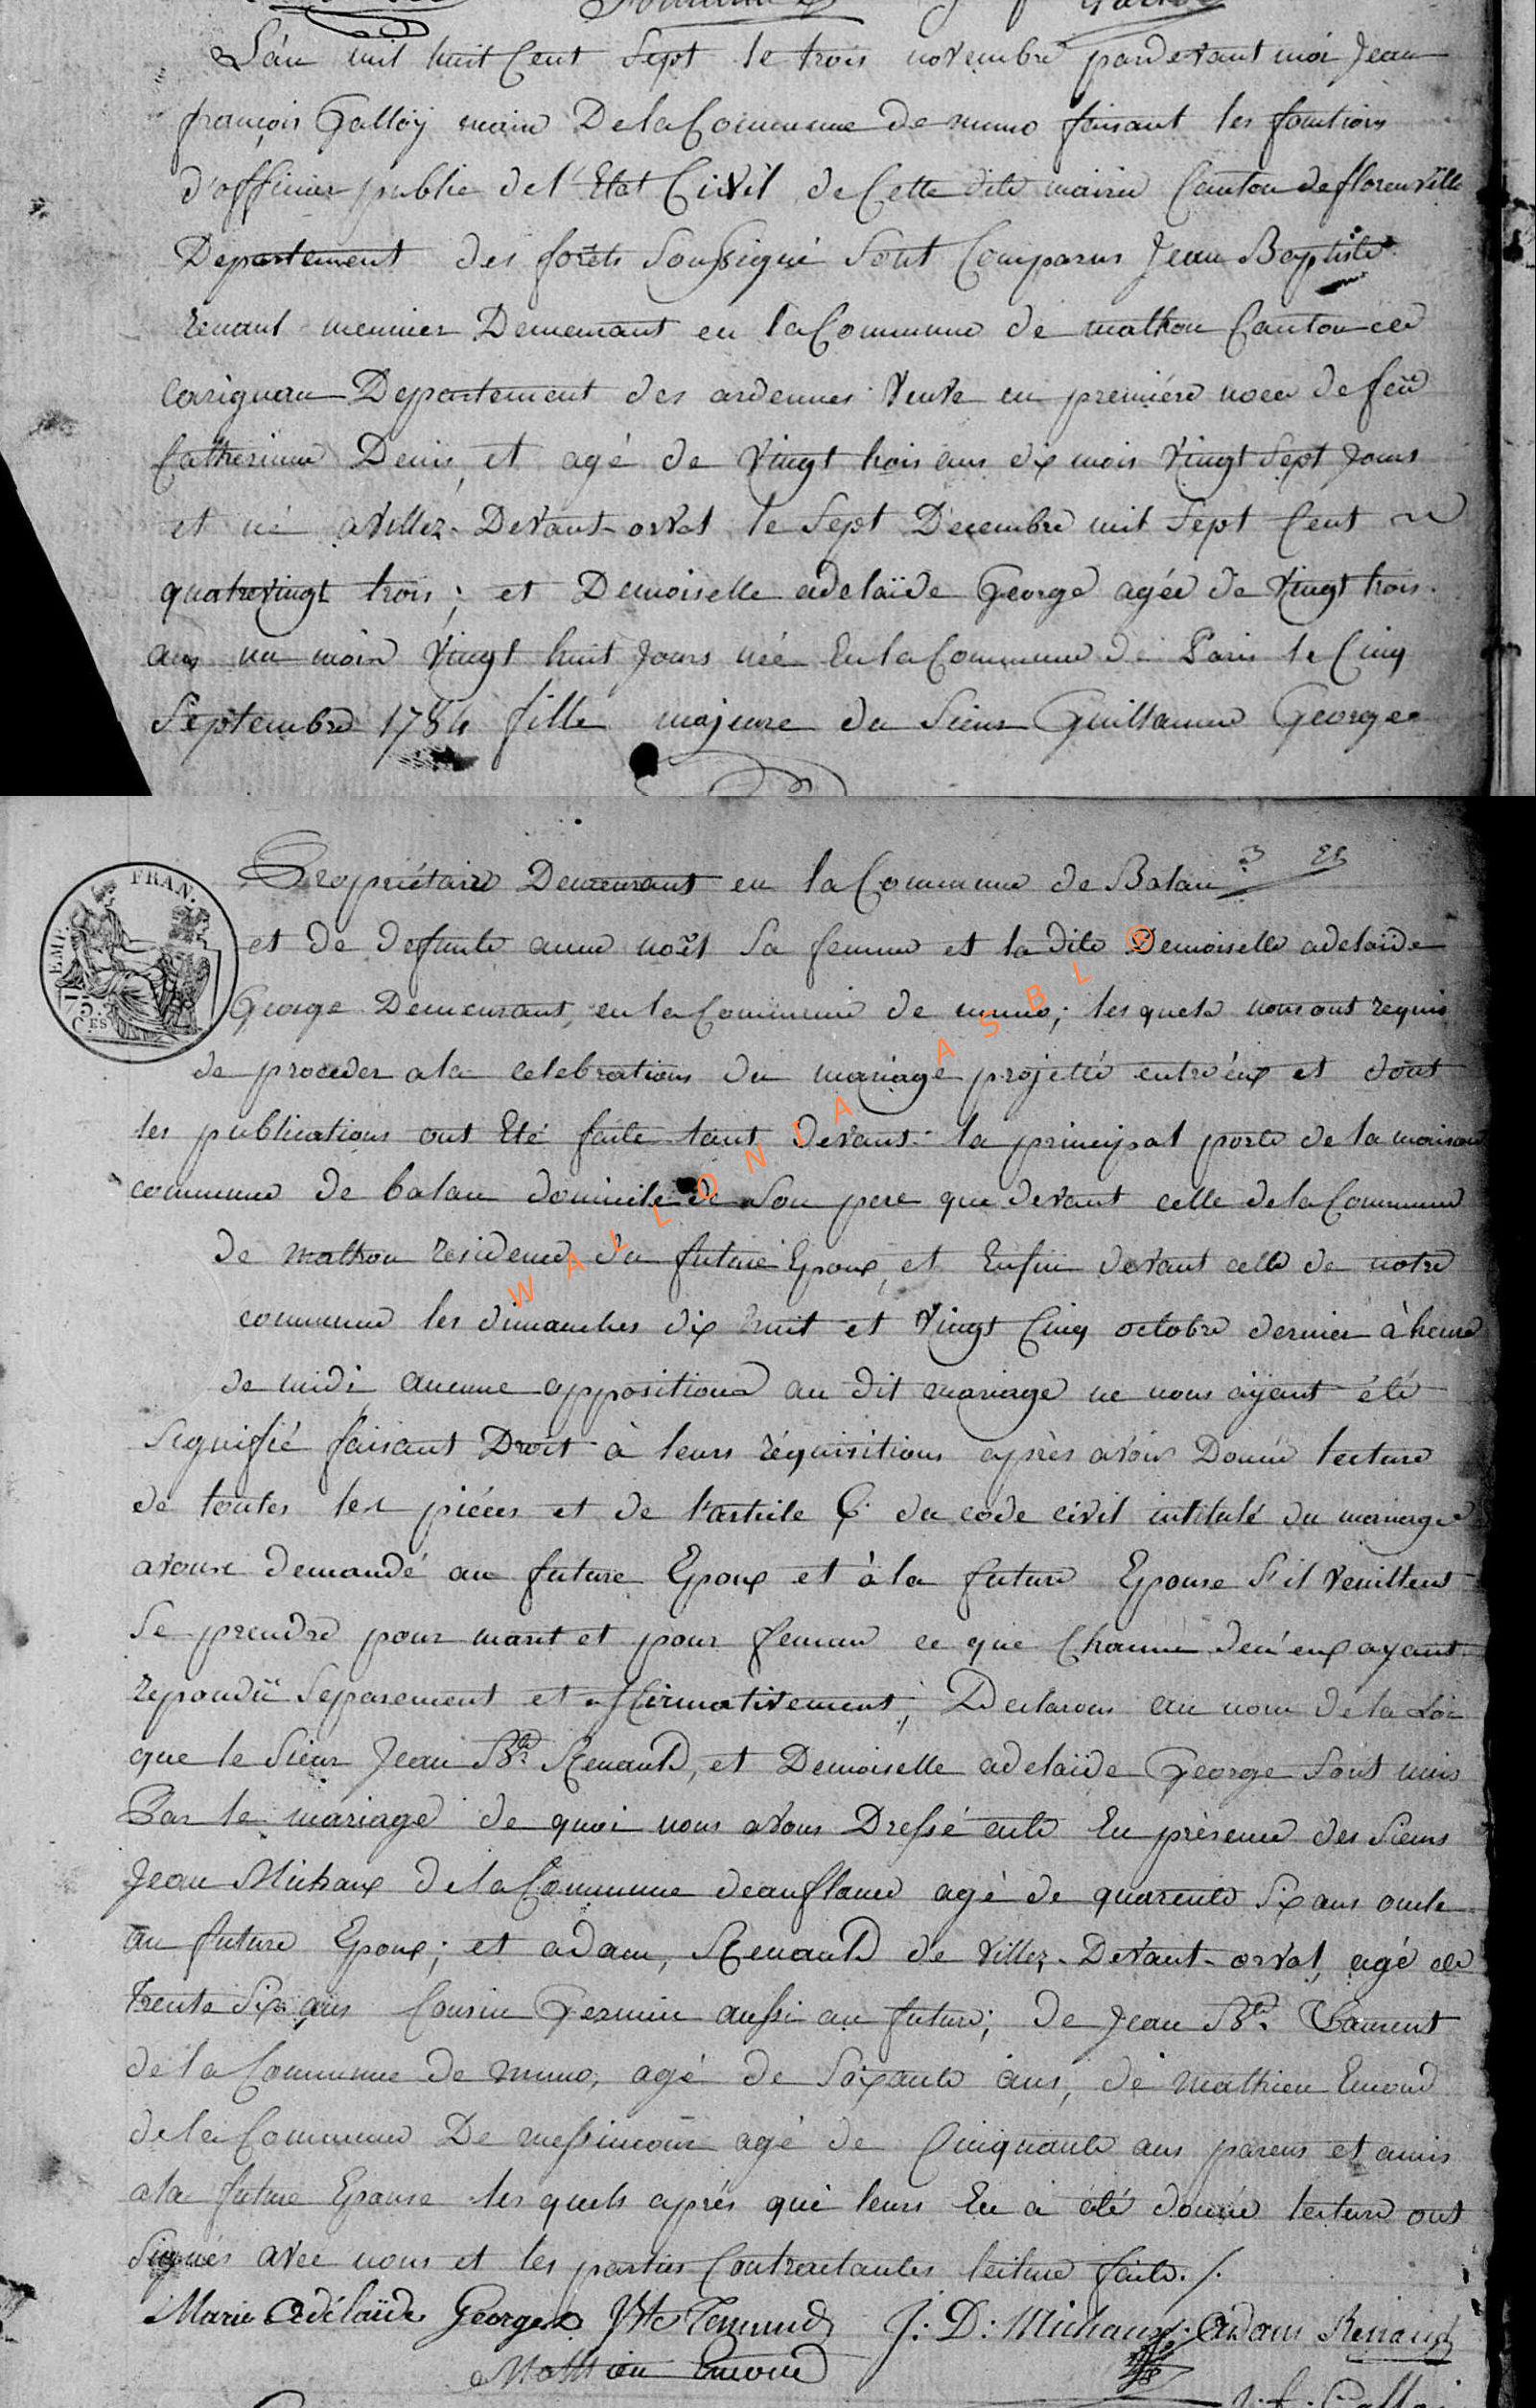 L'an mil huit Cent Sept le trois novembre pardevant moi Jean
françois Galloÿ maire De la Commune de muno faisant les fonctions
d'officier public de l'Etat Civil de Cette dite mairie Canton de florenville
Departement des forêts Soussigné Sont Comparus Jean Baptiste
renaut meunier Demeurant en la Commune de mathon Canton de
Carignan Departement des ardennes Veuve en première noce de feû
Catherinne Denis, et agé de Vingt trois ans dix mois Vingt Sept Jours
et né a Villez-Devant-orval le Sept Decembre mil Sept Cent
quatrevingt trois; et Demoiselle adelaïde George agée de Vingt trois
ans un mois Vingt huit Jours née En la Commune de Paris le Cinq
Septembre 1784 fille majeure du Sieur Guillaume George
Propriétaire Demeurant en la Commune de Balan
et de defunte anne noël Sa femme et la dite Demoiselle adelaïde
George Demeurant, en la Commune de muno; les quels nous ont requis
de proceder a la celebrations du mariage projetté entr'éux et dont
les publications ont Eté faite tant devant la principal porte de la maison
commune de balan domicile de Son pere que devant celle de la Commune
de mathon residence du future Epoux, et Enfin devant celle de notre
commune les dimanches dix huit et Vingt Cinq octobre dernier à heure
de midi aucune oppositions au dit mariage ne nous aÿant été
Signifié faisant Droit à leurs réquisitions après avoir Donné lecture
de toutes les piéces et de l'article 6. du code civil intitulé du mariage
avons demandé au future Epoux et à la future Epouse S'il veuillent
Se prendre pour marit et pour femme ce que Chacun deu'eux ayant
repondû Separement et affirmativement; Declarons au nom de la Loi
que le Sieur Jean Bte. Renauld, et Demoiselle adelaïde George Sont unis
Par le mariage de quoi nous avons Dressé acte En présence des Sieurs
Jean Michaux de la Commune deauflance agé de quarente Six ans oncle
au future Epoux; et adam, Renauld de Villez-Devant-orval, agé de
trente Six ans Cousin Germin aussi au future; de Jean Bte. Thament
de la Commune de muno, agé de Soixante ans, de mathieu Emond
de la Commune De messincour agé de Cinquante ans parens et amis
a la future Epouse les quels aprés qui leurs En a été donné lecture ont
Signés avec nous et les parties Contractantes lecture faite./.
Marie Adélaïde George J. D: Michaux. Adam Renaud
Mathieu Emond
EMP. FRAN.
75
Ces
WALLONIA ASBL ®